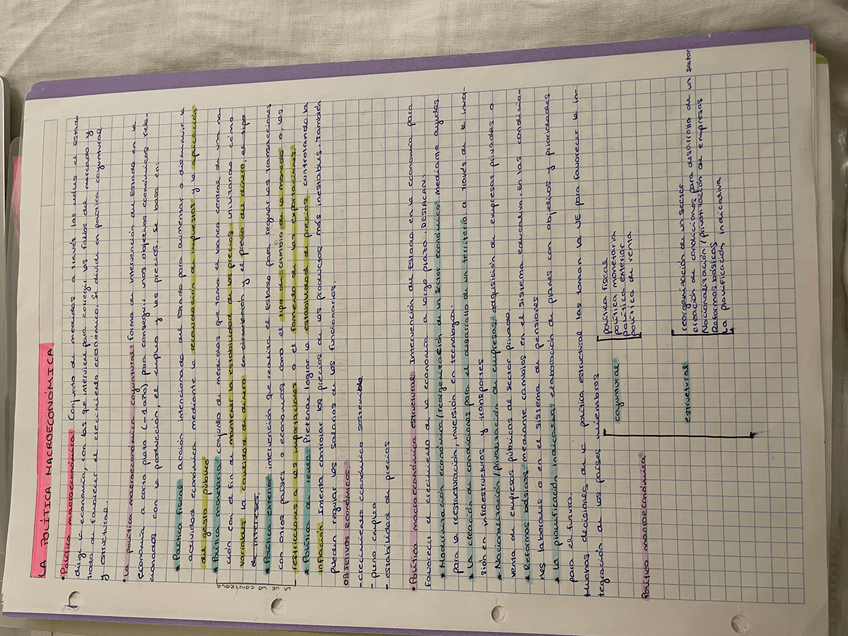 LA POLÍTICA MACROECONÓMICA
• Política macroeconómica: Conjunto de medidas a través las cuales el estado
dirige la economía, con las que interviene para corregir los fallos del mercado y
tratar de favorecer el crecimiento económico. Se divide en política coyuntural
y estructural.
• La política macroeconómica coyuntural: forma de intervención del Estado en la
economía a corto plazo (-1 año) para conseguir unos objetivos económicos rela-
cionados con la producción, el empleo y los precios. Se basa en:
* Política fiscal: acción intencionada del Estado para aumentar o disminuir la
actividad económica mediante la recaudación de impuestos y la aplicación
del gasto público
* Política monetaria: conjunto de medidas que toma el banco central de una na-
ción con el fin de mantener la estabilidad de los precios utilizando como
variables la cantidad de dinero en circulación y el precio del dinero, el tipo
de intereses.
LA UE LO CONTROLA
* Política exterior: intervención que realiza el Estado para regular las transacciones
con otros países o economías como el tipo de cambio de la moneda o las
restricciones a las importaciones o el fomento de las exportaciones.
* Política de renta: Pretende lograr la estabilidad de precios controlando la
inflación. Intenta controlar los precios de los productos más inestables. También
pueden regular los salarios de los funcionarios.
OBJETIVOS ECONÓMICOS:
- crecimiento económico sostenible
- pleno empleo
- estabilidad de precios
• Política macroeconómica estructural: Intervención del Estado en la economía para
favorecer el crecimiento de la economía a largo plazo. Destacan:
* Modernización económica (reorganización de un sector económico) mediante ayudas
para la reestructuración, inversión en tecnología.
* La creación de condiciones para el desarrollo de un territorio a través de la inver-
sión en infraestructuras y transportes
* Nacionalización/privatización de empresas: adquisición de empresas privadas o
venta de empresas públicas al sector privado.
* Reformas básicas: mediante cambios en el sistema educativo, en las condicio-
nes laborales o en el sistema de pensiones
* La planificación indicativa: elaboración de planes con objetivos y prioridades
para el futuro.
Muchas decisiones de la política estructural las toman la UE para favorecer la in-
tegración de los países miembros
Política macroeconómica
coyuntural
política fiscal
política monetaria
política exterior
política de renta
estructural
reorganización de un sector
creación de condiciones para desarrollo de un sector
Nacionalización/privatización de empresas
Reformas básicas
La planificación indicativa